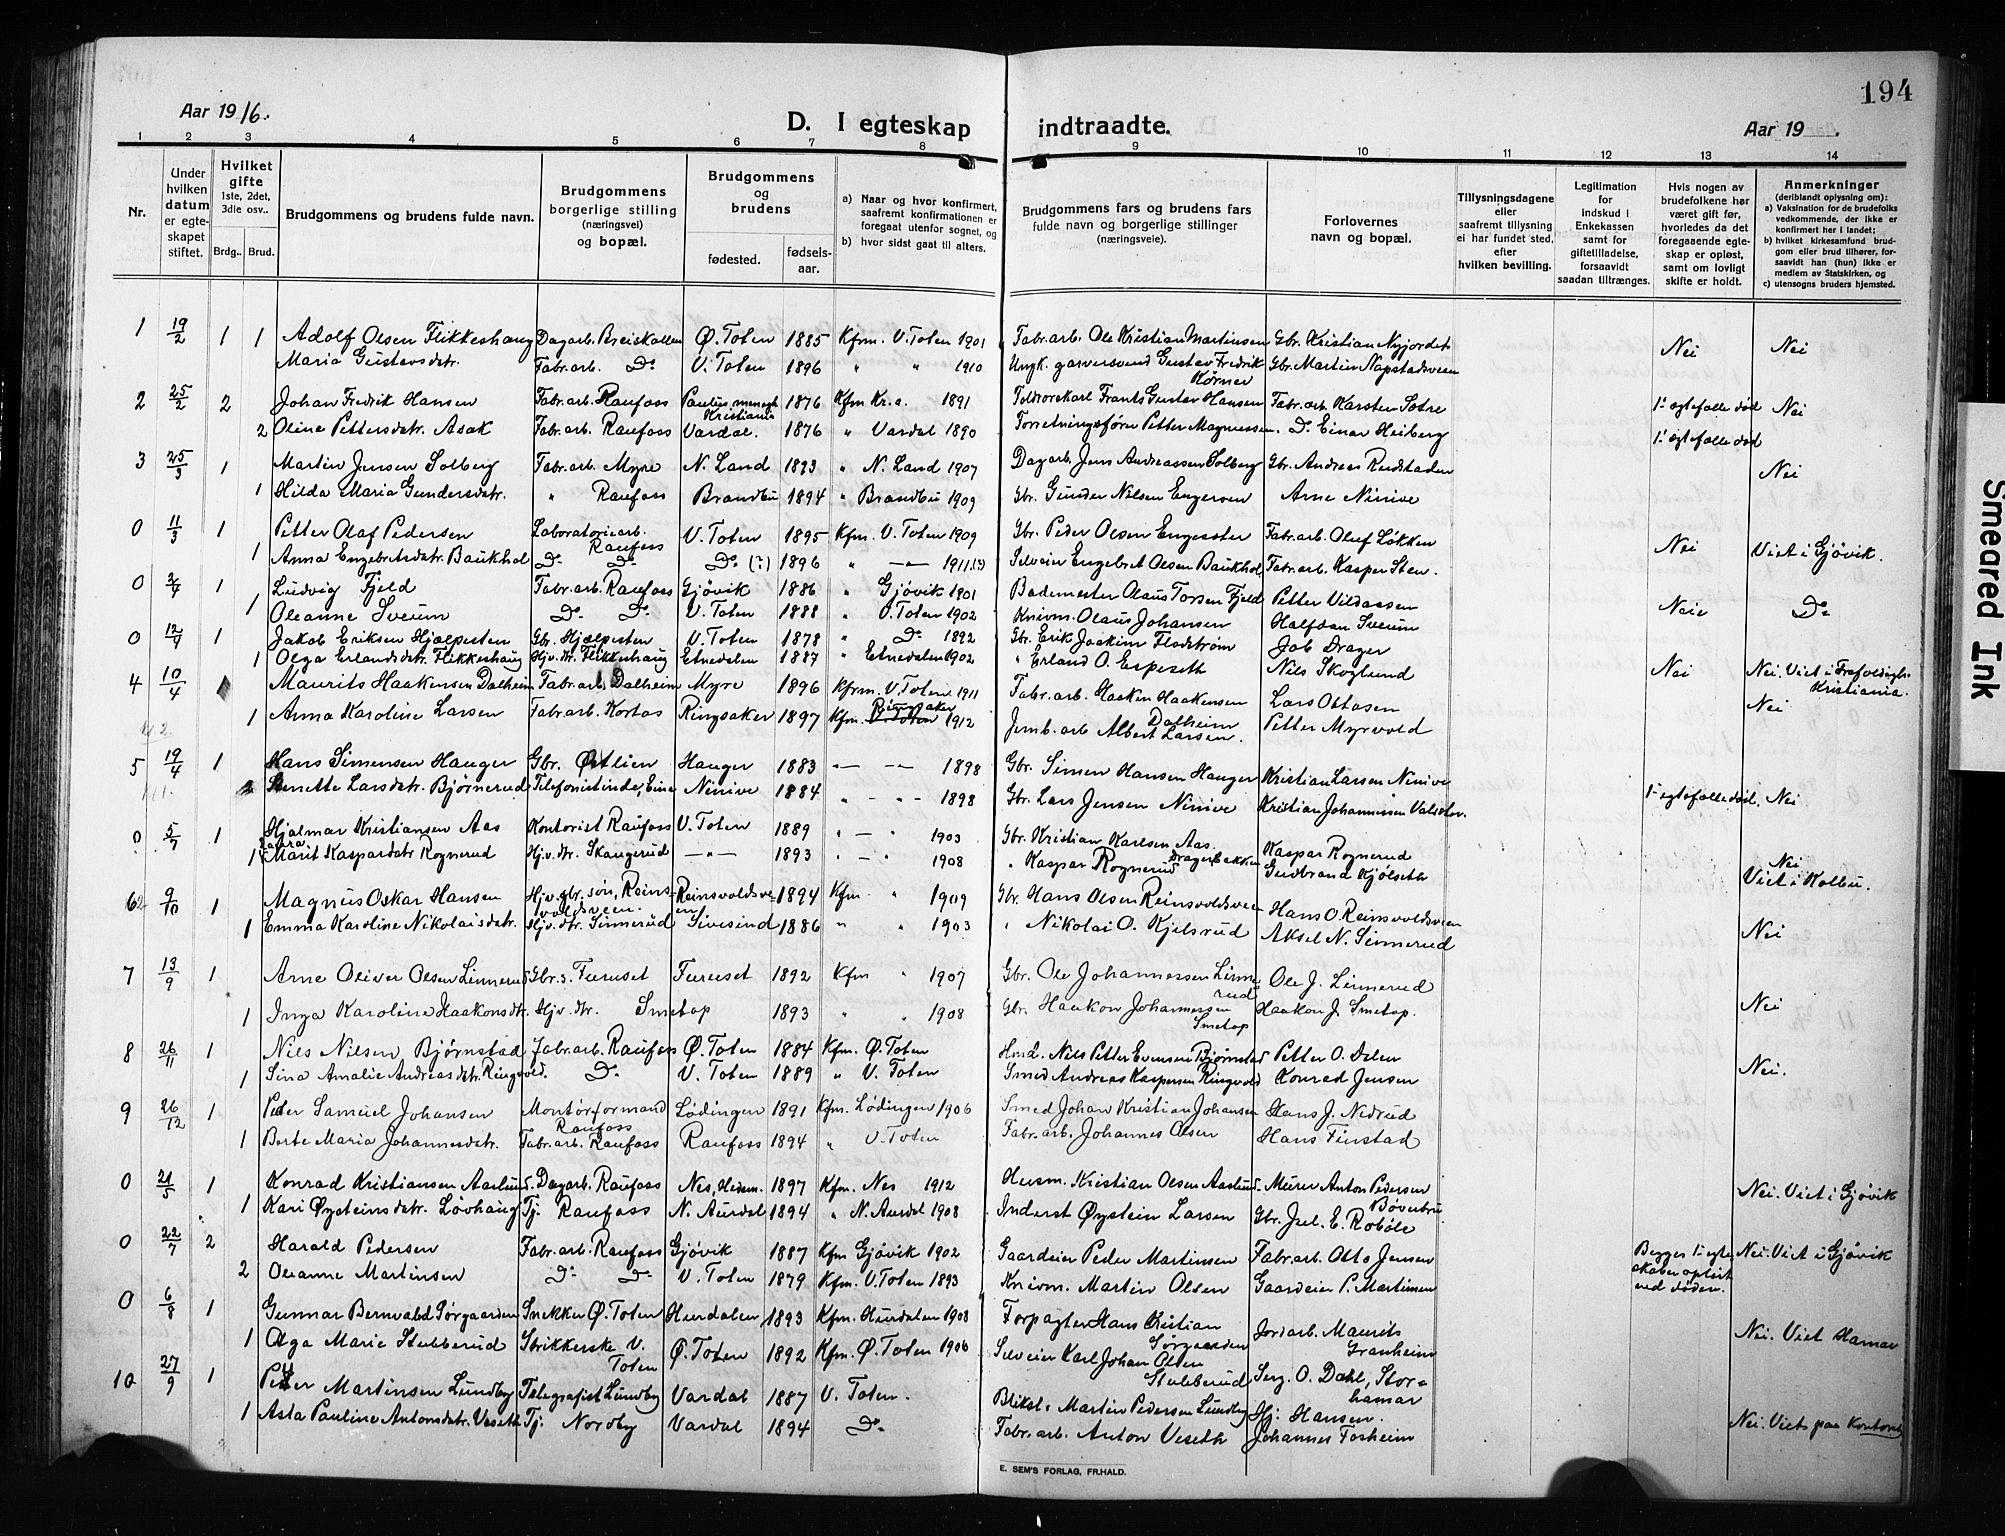 194
Aar 1916.
D. I egteskap indtraadte.
Aar 19 .
1 2 3 4 5 6 7 8 9 10 11 12 13 14
Nr.
Under hvilken datum er egteskapet stiftet.
Hvilket gifte 1ste, 2det, 3die osv..
Brdg.. Brud.
Brudgommens og brudens fulde navn.
Brudgommens borgerlige stilling (næringsvei) og bopæl.
Brudgommens og brudens
fødested. fødsels-aar.
a) Naar og hvor konfirmert, saafremt konfirmationen er foregaat utenfor sognet, og
b) hvor sidst gaat til alters.
Brudgommens fars og brudens fars fulde navn og borgerlige stillinger (næringsveie).
Forlovernes navn og bopæl.
Tillysningsdagene eller saafremt tillysning ei har fundet sted, efter hvilken bevilling.
Legitimation for indskud i Enkekassen samt for giftetilladelse, forsaavidt saadan tiltrænges.
Hvis nogen av brudefolkene har været gift før, hvorledes da det foregaaende egteskap er opløst, samt om lovligt skifte er holdt.
Anmerkninger (deriblandt oplysning om):
a) Vaksination for de brudefolks vedkommende, der ikke er konfirmert her i landet;
b) hvilket kirkesamfund brudgom eller brud tilhører, forsaavidt han (hun) ikke er medlem av Statskirken, og
c) utensogns bruders hjemsted.
1 19/2 1 1 Adolf Olsen Flikkeshaug Dagarb. Breiskallen Ø. Toten 1885 Kfrm. V. Toten 1901 Fabr.arb. Ole Kristian Martinsen Gbr. Kristian Nyjordet Nei Nei
Maria Gustavsdtr. Fabr.arb. Do V. Toten 1896 " " 1910 Ungk. garversvend Gustav Fredrik Kørner Gbr. Martin Napstadsveen
2 25/2 2 Johan Fredrik Hansen Fabr.arb. Raufoss Paulus menegh. Kristiania 1876 Kfm Kr.a. 1891 Toldrorskarl Frants Gustav Hansen Fabr.arb. Karsten Sætre 1. egtefælle død Nei
2 Oline Pettersdtr. Asak Fabr.arb. Raufoss Vardal. 1876 " Vardal 1890 Forretningsfører Petter Magnussen. Do Einar Heiberg 1. egtefælle død
3 25/3 1 Martin Jensen Solberg Fabr.arb. Myre N. Land 1893 " N. Land 1907 Dagarb. Jens Andreassen Solberg Gbr. Andreas Rudstaden Nei
1 Hilda Maria Gundersdtr. " Raufoss Brandbu 1894 " Brandbu 1909 Gbr. Gunder Nilsen Engersen Arne Ninive
0 11/3 1 Petter Olaf Pedersen Laboratoriearb. Raufoss V. Toten 1895 Kfm. V. Toten 1909 Gbr. Peder Olsen Engesæter Fabr.arb. Oluf Løkken Nei Viet i Gjøvik.
1 Anna Engebretsdtr. Baukhol Do Do Do (?) 1896 " — 1911(?) Selveier Engebret Olsen Baukhol Fabr.arb. Kasper Sten.
0 2/4 1 Ludvig Fjeld Fabr.arb. Raufoss Gjøvik 1886 " Gjøvik 1901 Bademester Olaus Torsen Fjeld Petter Vildaasen Neie Do
1 Oleanne Sveum Do Do V. Toten 1888 " V. Toten 1902 Knivm. Olaus Johansen Halfdan Sveum
0 12/4 1 Jakob Eriksen Hjælpesten Gbr. Hjælpesten V. Toten 1878 " Do 1892 Gbr. Erik Joakim Flodstrøm Job Drager
1 Olga Erlandsdtr. Flikkeshaug Hjv. dtr. Flikkeshaug Etnedalen 1887 " Etnedalen 1902 " Erland O. Espeseth Nils Skoglund Nei Nei. Viet i Trefoldigh. Kristiania.
4 10/4 Maurits Haakensen Dalheim Fabr.arb. Dalheim Myre 1896 Kfrm. V. Toten 1911 Fabr.arb. Haaken Haakensen Dalheim Lars Ottosen Nei
1 Anna Karoline Larsen Fabr.arb. Kortas Ringsaker 1897 Kfm. Ringsaker 1912 Jernb.arb Albert Larsen. Petter Myrvold
5 19/4 1 Hans Simensen Hauger Gbr. Østlien Hauger 1883 " — " — 1898 Gbr. Simen Hansen Hauger Kristian Larsen Ninive
2 Lenette Larsdtr. Bjørnerud Telefonistinde, Eina Ninive 1884 " — " — 1898 Gbr. Lars Jensen Ninive Kristian Johannessen 1. egtefælle død. Nei
0 5/7 1 Hjalmar Kristiansen Aas Kontorist Raufoss V. Toten 1889 " — " 1903 Gbr. Kristian Karlsen Aas. Kaspar Rognerud
1 Marit Kaspardtr Rognerud Hjv. dtr. Skangerud — " — 1893 " — " 1908 " Kaspar Rognerud Dragerbakken Gudbrand Kjølseth Nei Viet i Kolbu.
6 9/10 1 Magnus Oskar Hansen Hjv. gbr. søn, Reinsvoldsveen Reinsvoldsveen 1894 Kfm " 1909 Gbr. Hans Olsen Reinsvoldsveen Hans O. Reinsvoldsveen
1 Emma Karoline Nikolaisdtr. Hjv. dtr. Sinnerud Sivesind 1886 " " 1903 " Nikolai O. Kjelsrud Aksel N. Sinnerud Nei
7 13/9 1 Arne Oliver Olsen Linnerud Gbr. s. Furuset Furuset 1892 Kfm " 1907 Gbr. Ole Johannessen Linnerud Ole J. Linnerud
1 Inga Karoline Haakonsdtr. Hjv. dtr. Smetop 1893 " " 1908 Gbr. Haakon Johannessen Smetop Haakon J. Smetop. Nei
8 26/11 1 Nils Nilsen Bjørnstad Fabr.arb. Raufoss Ø. Toten 1884 Kfm. Ø. Toten Hmd. Nils Petter Evensen Bjørnstad Petter O. Dalen
1 Sina Amalie Andreasdtr. Ringvold. Do V. Toten 1889 " V. Toten Smed Andreas Kaspersen Ringvold Konrad Jensen Nei.
9 26/12 1 Peder Samuel Johansen Montørformand Raufoss Lødingen 1891 Kfm. Lødingen 1906 Smed Johan Kristian Johansen Hans J. Nedrud
1 Berte Maria Johannesdtr. Fabr.arb. Raufoss Raufoss 1894 " V. Toten Fabr.arb. Johannes Olsen Hans Finstad
0 21/5 1 Konrad Kristiansen Aaslund. Dagarb. Raufoss Nes, Hedm. 1897 Kfm. Nes 1912 Husm. Kristian Olsen Aaslund Murer Anton Pedersen Bøverbru Nei. Viet i Gjøvik
1 Kari Øysteinsdtr. Løvhaug Tj. Raufoss N. Aurdal 1894 " N. Aurdal 1908 Inderst Øystein Larsen Gbr. Jul. E. Robøle
0 22/7 2 Harald Pedersen Fabr.arb. Raufoss Gjøvik 1887 Kfm Gjøvik 1902 Gaardeier Peder Martinsen Fabr.arb. Otto Jensen Begges 1. egteskaber opløst ved døden. Nei. Viet i Gjøvik
2 Oleanne Martinsen Do Do V. Toten 1879 Kfm. V. Toten 1893 Knivm. Martin Olsen Gaardeier P. Martinsen
0 6/8 1 Gunnar Bernvald Sørgaarden Snekker Ø. Toten Hurdalen 1893 Kfm. Hurdalen 1908 Forpagter Hans Kristian Sørgaarden Jordarb. Maurits Granheim
1 Olga Marie Stubberud Strikkerske V. Toten Ø. Toten 1892 Kfm. Ø. Toten 1906 Selveier Karl Johan Olsen Stubberud Serg. O. Dahl, Storhamar Nei. Viet Hamar
10 27/9 1 Petter Martinsen Lundby Telegrafist Lundby Vardal 1887 V. Toten. Bliksl. Martin Pedersen Lundby Hj. Hansen.
1 Asta Pauline Antonsdtr. Veseth Tj. Nordby Vardal 1894 Do Fabr.arb. Anton Veseth Johannes Fosheim Nei. Viet paa Kontoret
E. SEM'S FORLAG, FR.HALD.
Smeared Ink